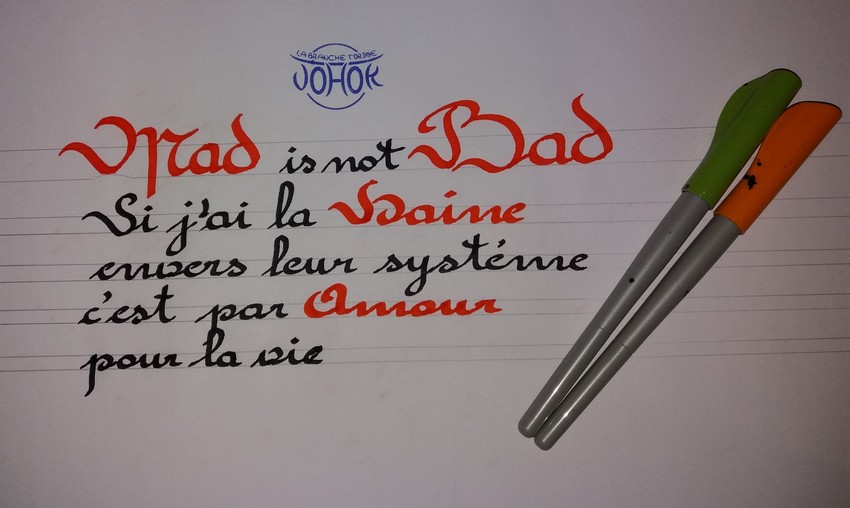 LA BRANCHE TORDUE
JOHOK
Mad is not Bad
Si j'ai la Haine
envers leur systéme
c'est par Amour
pour la vie